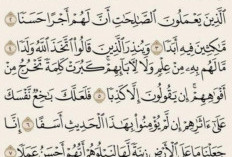 الَّذِينَ يَعْمَلُونَ الصَّٰلِحَٰتِ أَنَّ لَهُمْ أَجْرًا حَسَنًا ٢
مَّٰكِثِينَ فِيهِ أَبَدًا ٣ وَيُنذِرَ الَّذِينَ قَالُوا۟ اتَّخَذَ اللَّهُ وَلَدًا ٤
مَّا لَهُم بِهِۦ مِنْ عِلْمٍ وَلَا لِـَٔابَآئِهِمْ كَبُرَتْ كَلِمَةً تَخْرُجُ مِنْ
أَفْوَٰهِهِمْ إِن يَقُولُونَ إِلَّا كَذِبًا ٥ فَلَعَلَّكَ بَٰخِعٌ نَّفْسَكَ
عَلَىٰٓ ءَاثَٰرِهِمْ إِن لَّمْ يُؤْمِنُوا۟ بِهَٰذَا الْحَدِيثِ أَسَفًا ٦ إِنَّا
جَعَلْنَا مَا عَلَى الْأَرْضِ زِينَةً لَّهَا لِنَبْلُوَهُمْ أَيُّهُمْ أَحْسَنُ عَمَلًا ٧